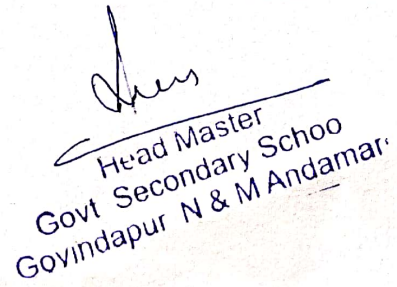 Head Master
Govt Secondary Schoo
Govindapur N & M Andaman